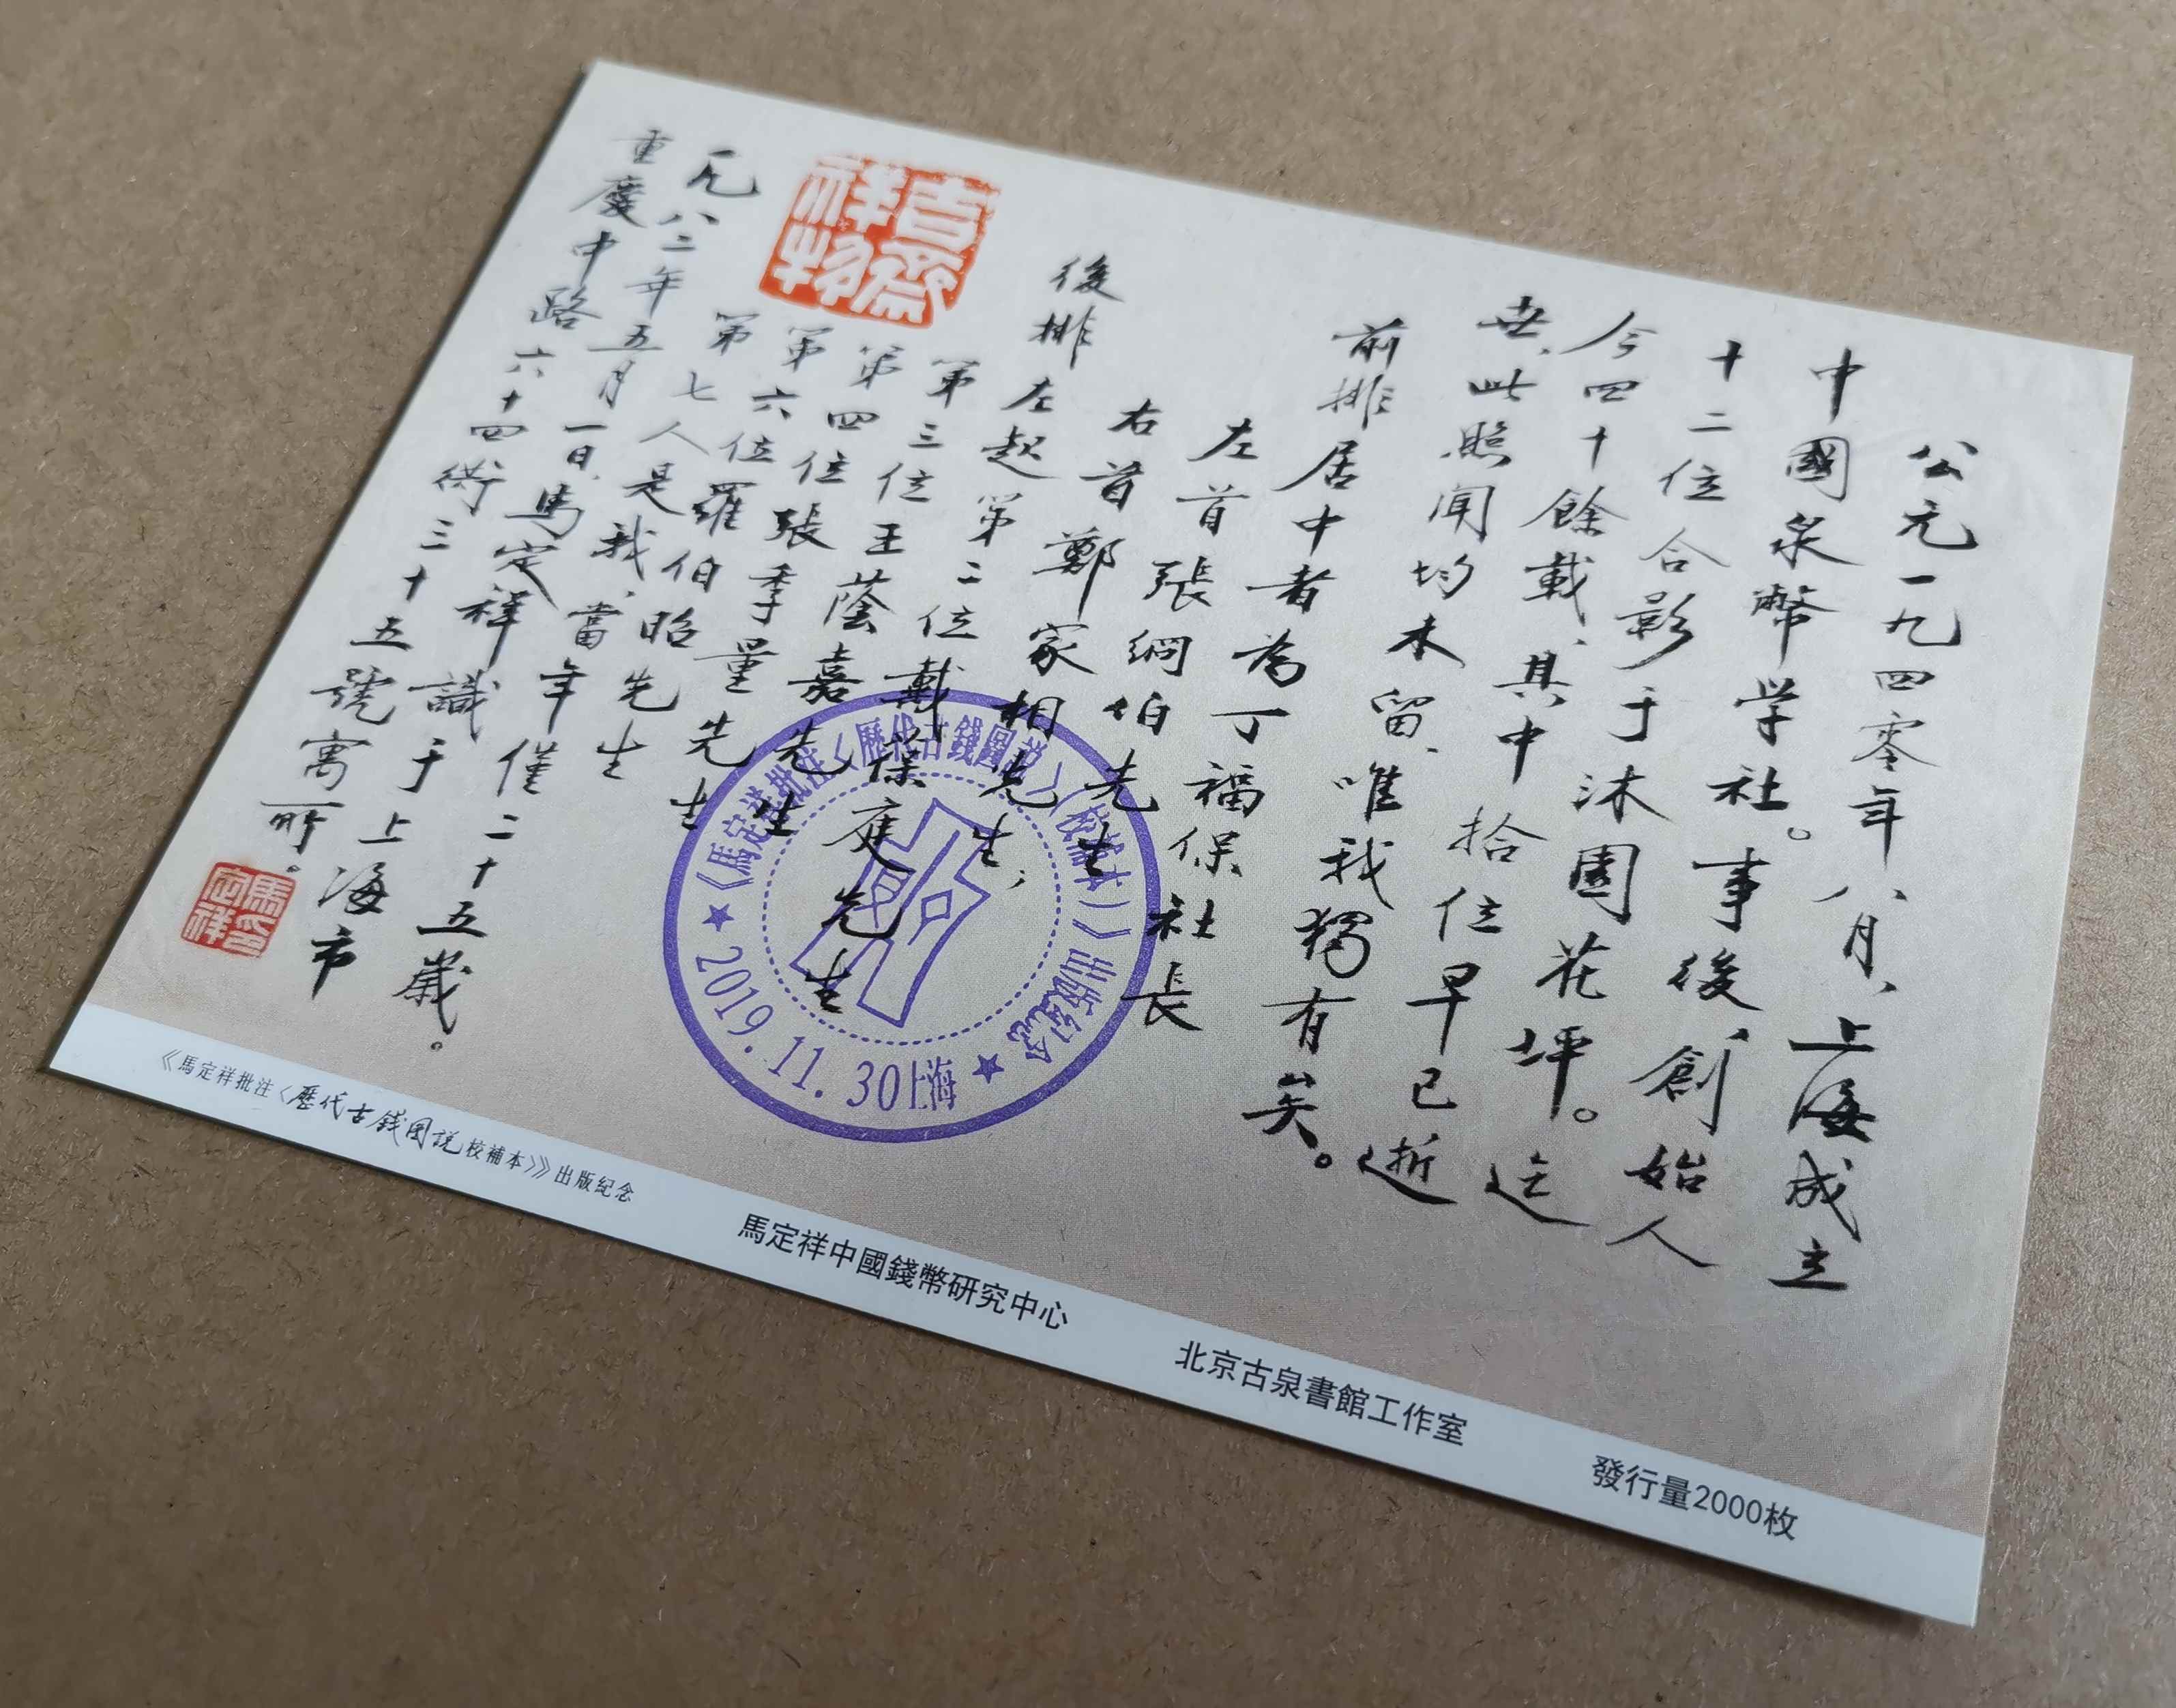 公元一九四零年八月、上海成立
中國泉幣学社。事後、創始人
十二位合影于沐園花坪。迄
今四十餘載、其中拾位早已逝
世、此照聞均未留、唯我獨有矣。
前排居中者為丁福保社長
左首張絅伯先生
右首鄭家相先生、
後排左起第二位戴葆庭先生
第三位王蔭嘉先生
第四位張季量先生
第六位羅伯昭先生
第七人是我、當年僅二十五歲。
一九八二年五月一日、馬定祥識于上海市
重慶中路六十四衖三十五號寓所。
吉齋祥物
馬定祥印
《馬定祥批注〈歷代古錢圖説〉(校補本)》出版紀念
2019.11.30上海
《馬定祥批注〈歷代古錢图説校補本〉》出版紀念
馬定祥中國錢幣研究中心
北京古泉書館工作室
發行量2000枚